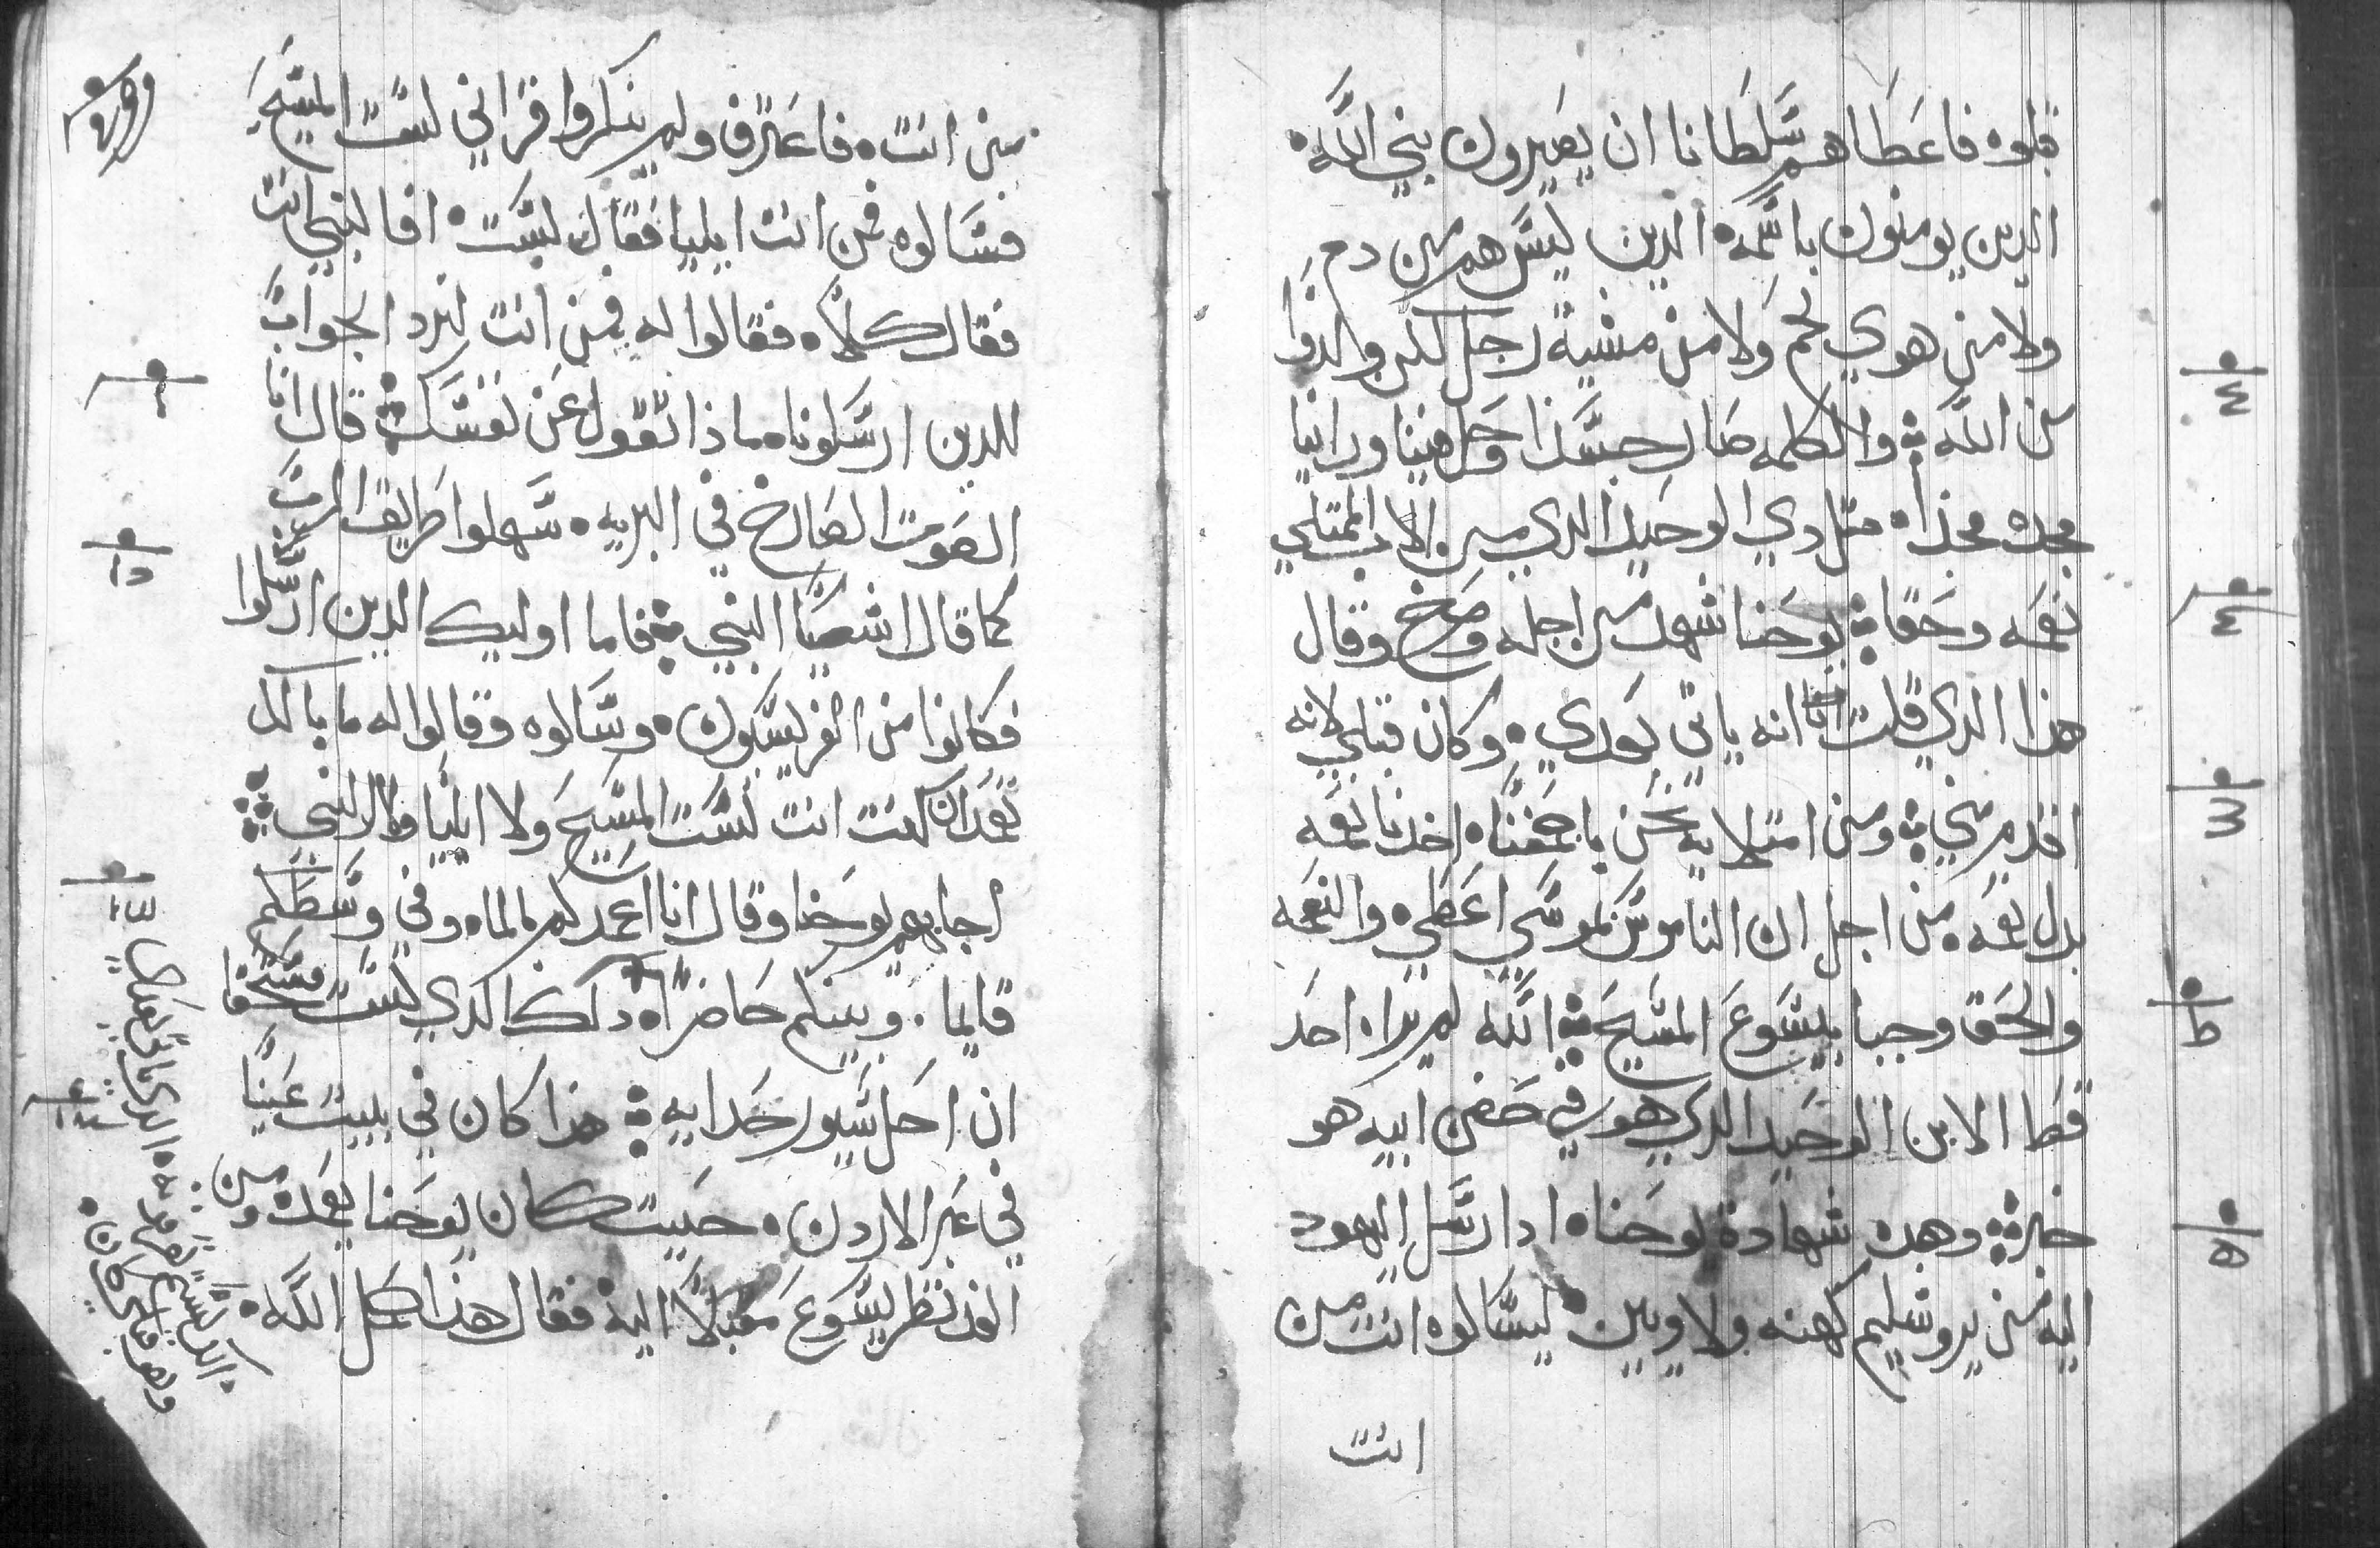 قبلوه فاعطاهم سلطانا ان يصيرون بني الله
الدين يومنون باسمه الدين ليس هم من دم
ولا من هوي لحم ولا من مشية رجل لكن ولدوا
من الله والكلمه صار جسدا وحل فينا وراينا
مجده مجدا مثل دي الوحيد الدي من الاب الممتلي
نعمه وحقا يوحنا شهد من اجله وصرخ وقال
هدا الدي قلت انا انه ياتي بعدي وكان قبلي لانه
اقدم مني ومن امتلايه نحن باجمعنا اخدنا نعمه
بدل نعمه من اجل ان الناموس لموسي اعطي والنعمه
والحق وجبا بيسوع المسيح الله لم يراه احد
قط الابن الوحيد الدي هو في حضن ابيه هو
خبر وهده شهادة يوحنا ادا رسل اليهود
اليه من يروشليم كهنه ولاويين ليسالوه انت من
انت
من انت فاعترف ولم ينكر واقر اني لست المسيح
فسالوه فمن انت ايليا فقال لست افالنبي انت
فقال كلا فقالوا له فمن انت لنرد الجواب
للدين ارسلونا مادا تقول عن نفسك قال انا
الصوت الصارخ في البريه سهلوا طريق الرب
كما قال اشعيا النبي فاما اوليك الدين ارسلوا
فكانوا من الفريسيون وسالوه وقالوا له ما بالك
تعمد ان كنت انت لست المسيح ولا ايليا ولا النبي
اجابهم يوحنا وقال انا اعمدكم بالماء وفي وسطكم
قايما وبينكم حاضرا داك الدي لست مستحقا
ان احل سيور حدايه هدا كان في بيت عنيا
في عبر الاردن حيث كان يوحنا يعمد ومن
الغد نظر يسوع مقبلا اليه فقال هدا حمل الله